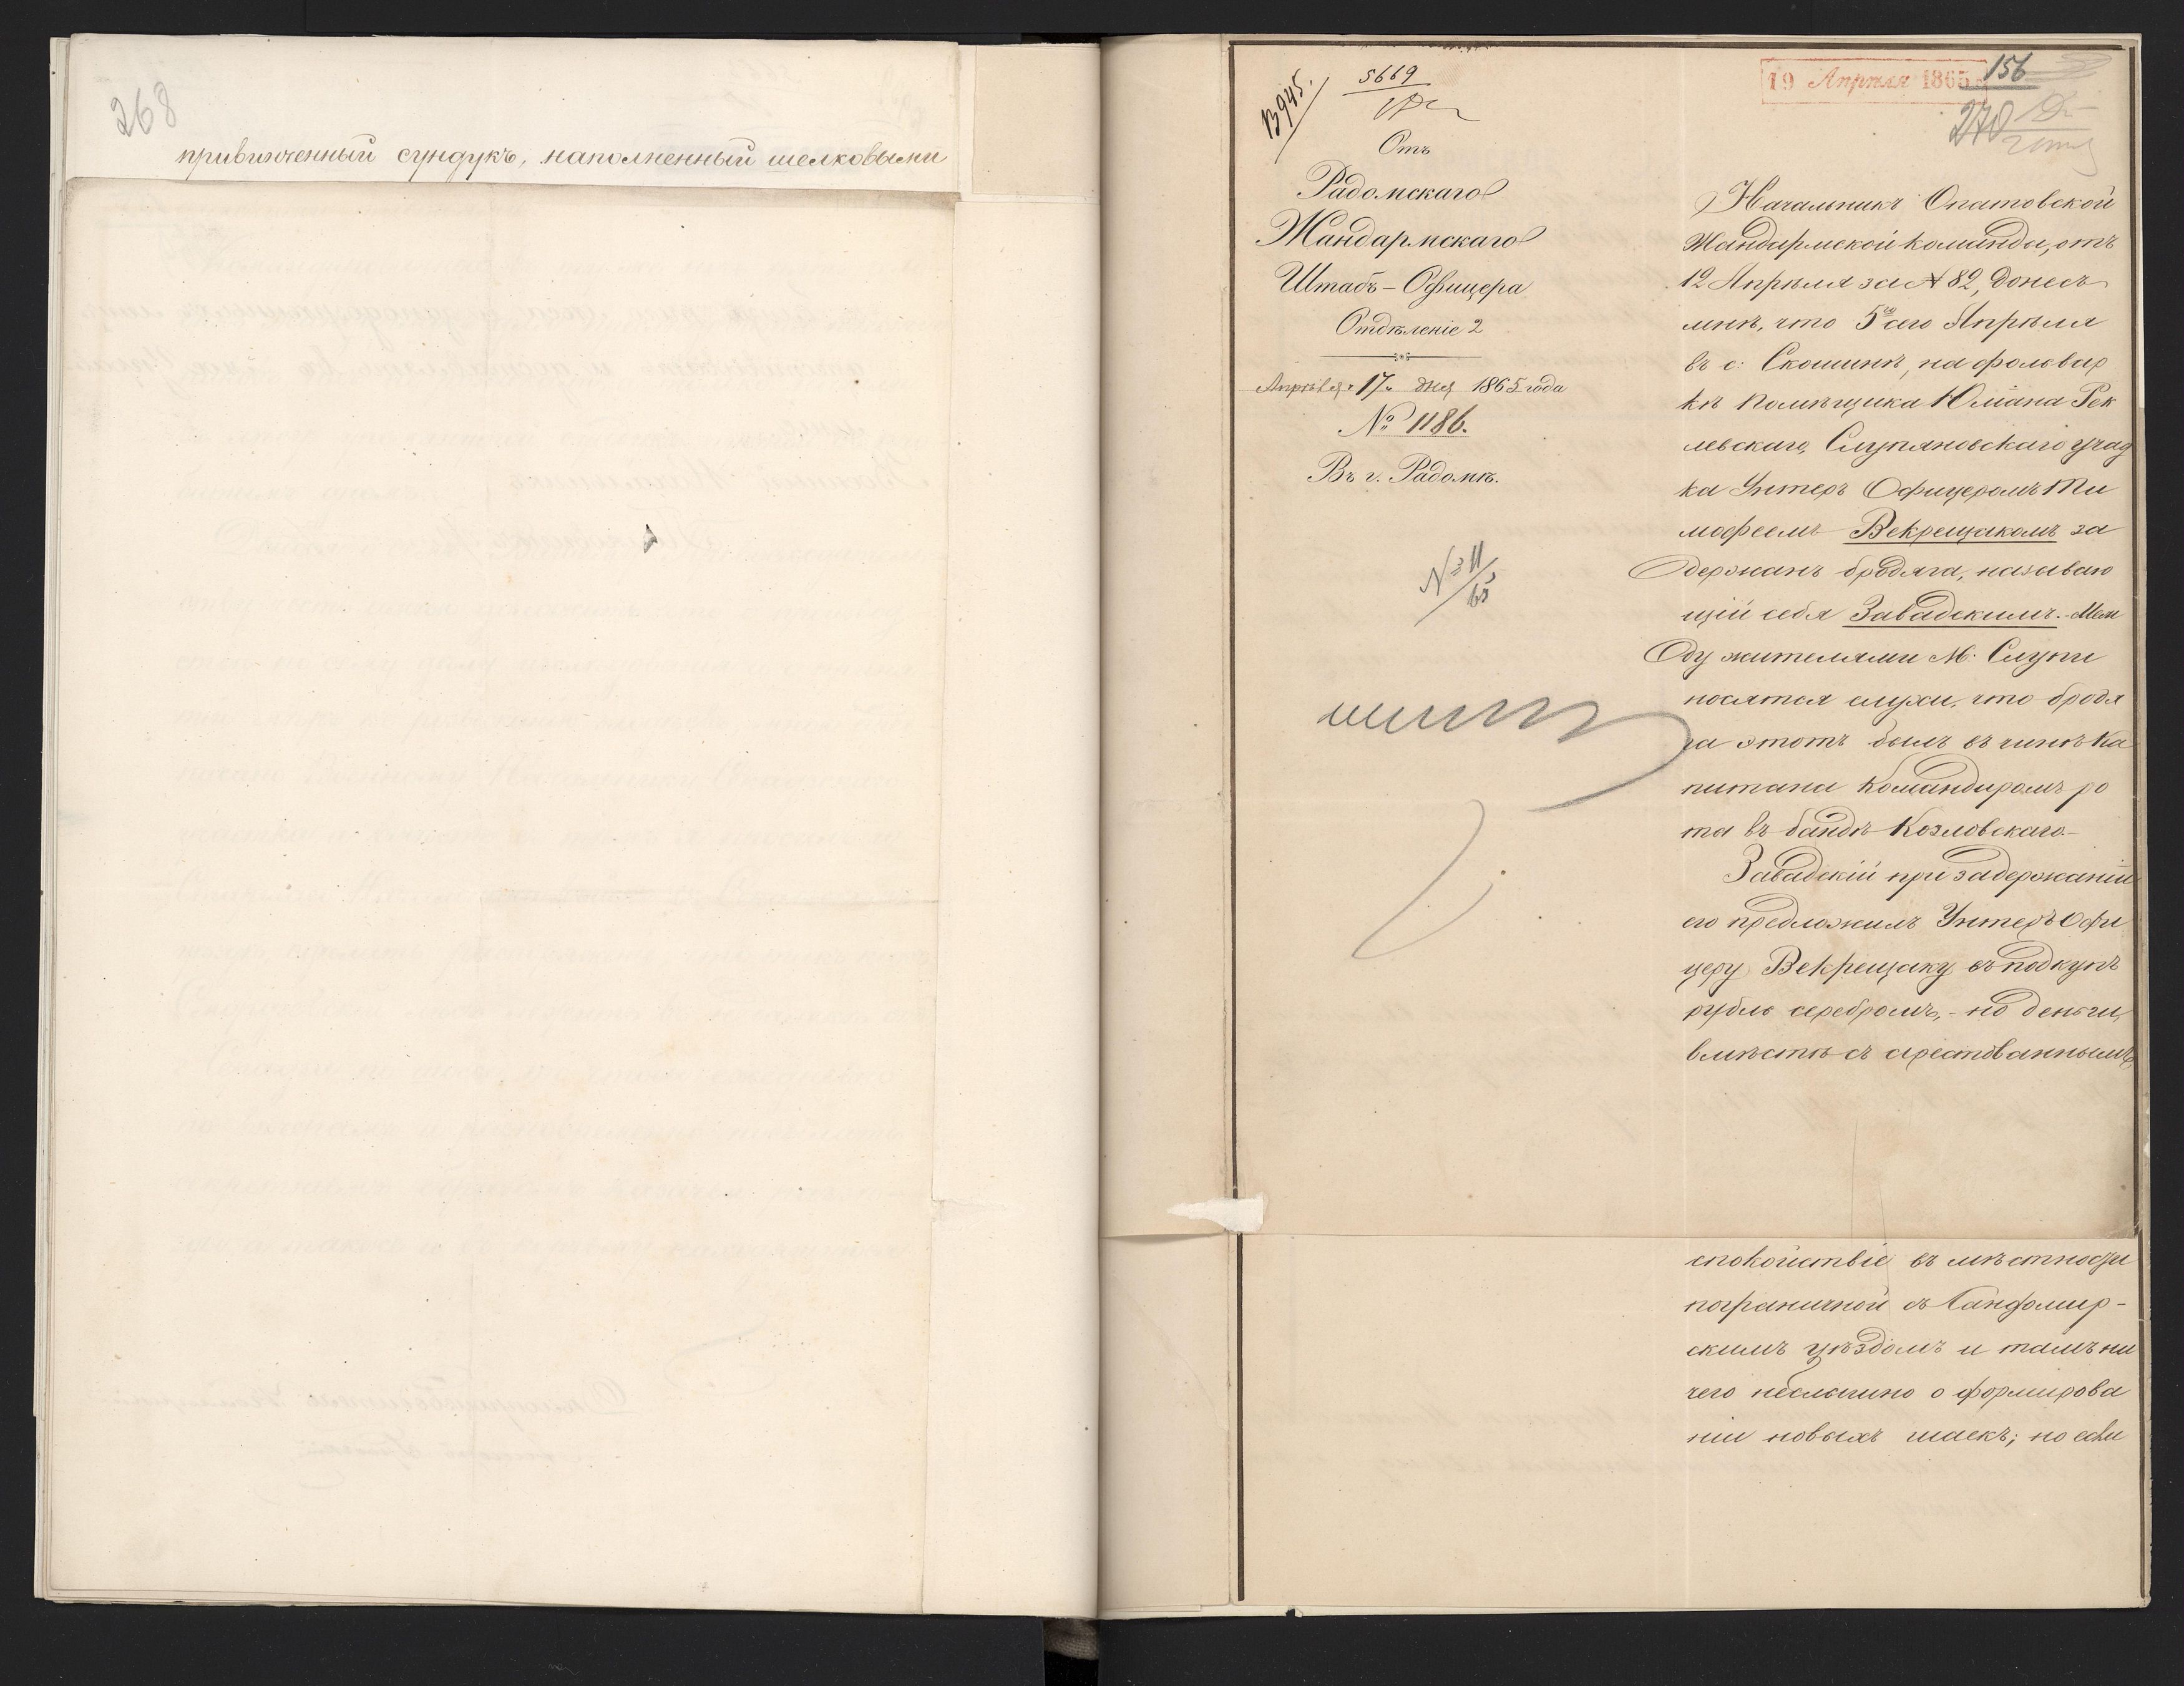 268
привинченный сундукъ, наполненный шелковыми
В 945.
5669
Отъ
Радомскаго
Жандармскаго
Штабъ-Офицера
Отдѣленіе 2
Апрѣля 17 дня 1865 года
№ 1186.
Въ г. Радомѣ.
№ 11/65
19 Апрѣля 1865
156
270
Начальникъ Опатовской
Жандармской команды, отъ
12 Апрѣля за № 82, донесъ
мнѣ, что 5го сего Апрѣля
въ с: Скошинѣ, на фольвар
кѣ Помѣщика Юліана Рек
левскаго, Слупяновскаго участ
ка Унтеръ Офицеромъ Ти
мофеемъ Векрещакомъ за
держанъ бродяга, называю
щій себя Завадскимъ. Меж
ду жителями М: Слупи
носятся слухи, что бродя
га этотъ былъ въ чинѣ Ка
питана Командиромъ ро
ты въ бандѣ Козловскаго.
Завадскій при задержаніи
его предложилъ Унтеръ Офи
церу Векрещаку въ подкупъ
рубль серебромъ, - но деньги,
вмѣстѣ съ арестованнымъ
спокойствіе въ мѣстности
пограничной съ Сандомир-
скимъ уѣздомъ и тамъ ни
чего неслышно о формирова
ніи новыхъ шаекъ; но если